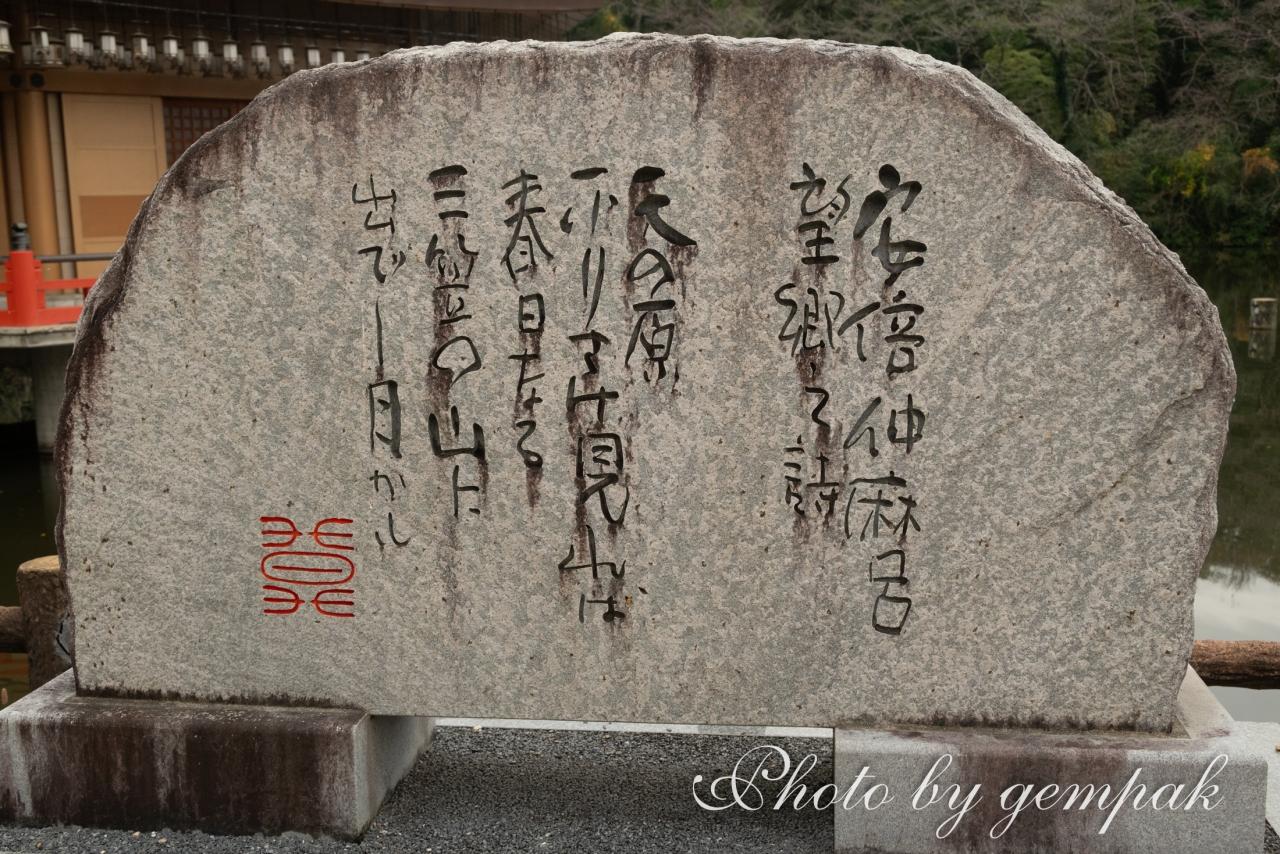 安倍仲麻呂
望郷之詩
天の原
ふりさけ見れば
春日なる
三笠の山に
出でし月かも
Photo by gempak